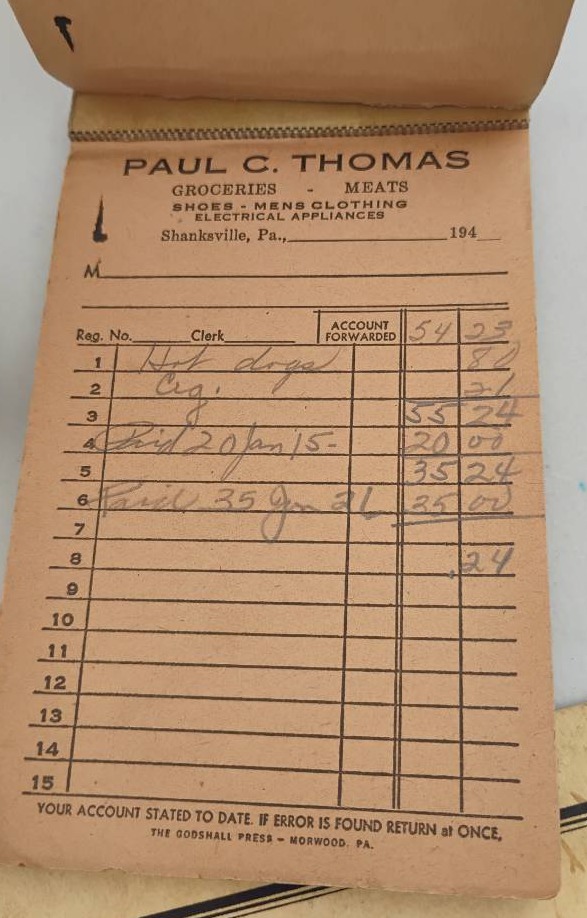 PAUL C. THOMAS
GROCERIES - MEATS
SHOES - MENS CLOTHING
ELECTRICAL APPLIANCES
Shanksville, Pa., 194
M
Reg. No. Clerk ACCOUNT FORWARDED 54 23
1 Hot dogs 80
2 Cig. 21
3 55 24
4 Paid 20 Jan 15- 20 00
5 35 24
6 Paid 35 Jan 35 00
7
8 .24
9
10
11
12
13
14
15
YOUR ACCOUNT STATED TO DATE. IF ERROR IS FOUND RETURN at ONCE,
THE GODSHALL PRESS - MORWOOD, PA.